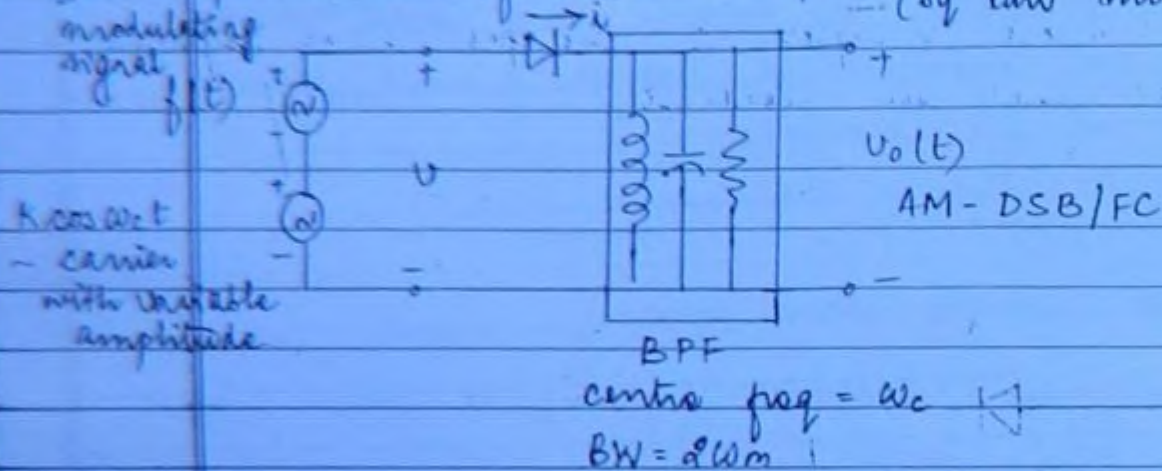 modulating
signal
f(t)
+
-
+
-
K cos ωct
~ carrier
with variable
amplitude
+
υ
-
i
(by law
+
υo(t)
AM - DSB/FC
-
BPF
centre freq = ωc
BW = 2ωm